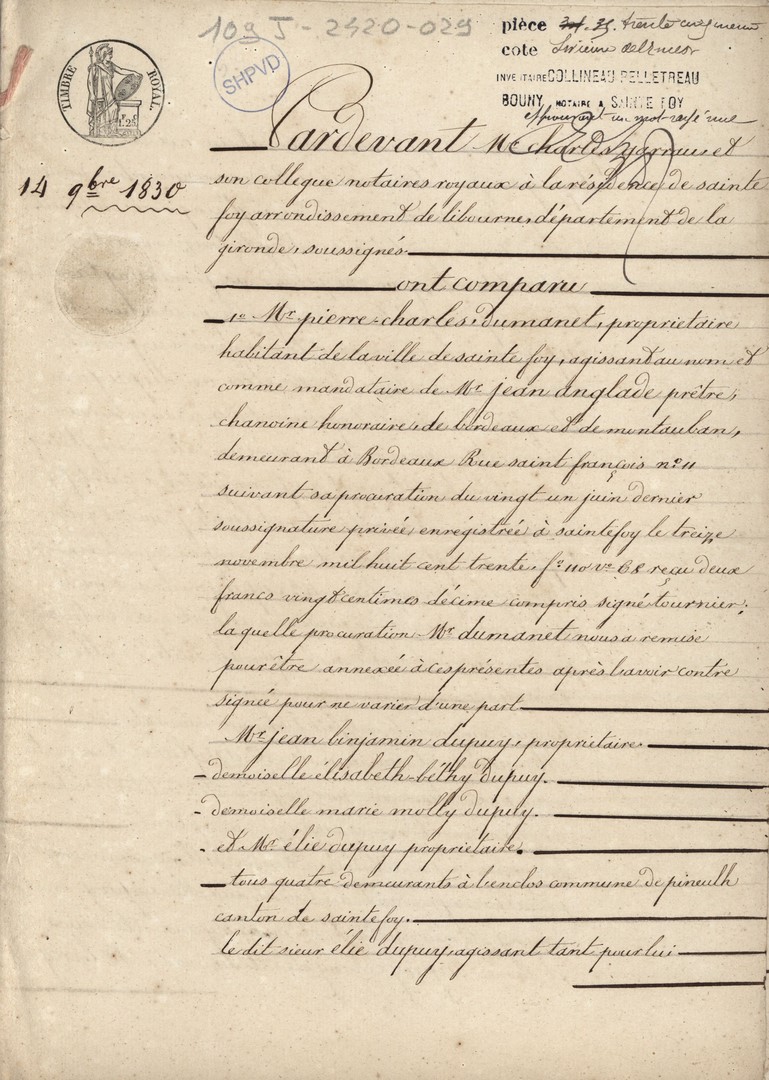 109 J - 2420-029
pièce 35 trente
cote
INVENTAIRE COLLINEAU PELLETREAU
BOUNY, NOTAIRE A SAINTE FOY
approuvant un mot rayé nul
TIMBRE ROYAL.
1F.25
SHPVD
14 9bre 1830
Pardevant Me Charles et
son collègue notaires royaux à la résidence de sainte
foy arrondissement de libourne, département de la
gironde, soussignés.
ont comparu
1o Mr. pierre-charles, dumanet, propriétaire
habitant de la ville de sainte foy, agissant au nom et
comme mandataire de Mr. jean anglade prêtre,
chanoine honoraire, de bordeaux et de montauban,
demeurant à Bordeaux Rue saint françois no. 11
suivant sa procuration du vingt un juin dernier
soussignature privée, enregistrée à sainte foy le treize
novembre mil huit cent trente, fo. 110 vo. C. 8 reçu deux
francs vingt centimes décime compris signé tournier;
la quelle procuration Mr. dumanet nous a remise
pour être annexée à ces présentes après l'avoir contre
signée pour ne varier d'une part
Mr. jean binjamin dupuy, propriétaire.
- demoiselle élisabeth-béthy dupuy.
- demoiselle marie molly dupuy.
- et Mr. élie dupuy propriétaire.
tous quatre demeurants à l'enclos commune de pineulh
canton de sainte foy.
le dit sieur élie dupuy, agissant tant pour lui